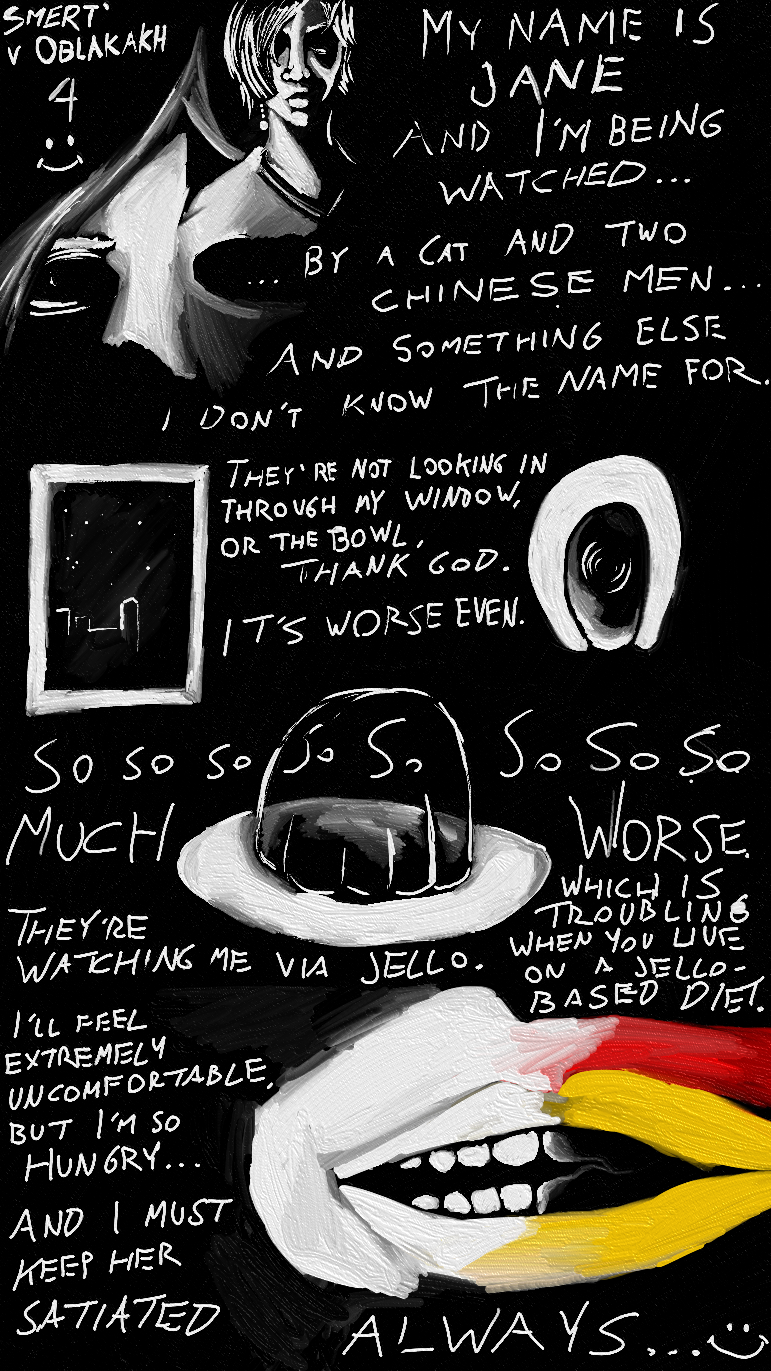 SMERT'
V OBLAKAKH
4
MY NAME IS
JANE
AND I'M BEING
WATCHED...
... BY A CAT AND TWO
CHINESE MEN...
AND SOMETHING ELSE
I DON'T KNOW THE NAME FOR.
THEY'RE NOT LOOKING IN
THROUGH MY WINDOW,
OR THE BOWL,
THANK GOD.
IT'S WORSE EVEN.
SO SO SO SO SO SO SO SO
MUCH WORSE.
THEY'RE
WATCHING ME VIA JELLO.
WHICH IS
TROUBLING
WHEN YOU LIVE
ON A JELLO-
BASED DIET.
I'LL FEEL
EXTREMELY
UNCOMFORTABLE,
BUT I'M SO
HUNGRY...
AND I MUST
KEEP HER
SATIATED
ALWAYS...